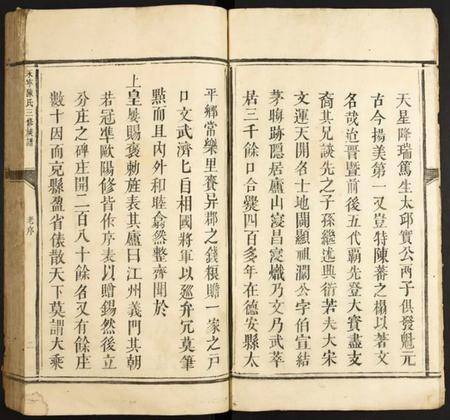 天星降瑞篤生太邱實公兩子俱發魁元
古今揚美第一又豈特陳蕃之榻以著文
名哉迨晋暨前後五代覇先登大寳盡支
裔其兄談先之子孫繼述興衍若夫大宋
文運天開名士地闢顯祖瀾公字伯宣結
茅聊跡隱居廬山寖昌寖熾乃文乃武萃
居三千餘口合爨四百多年在德安縣太
平鄉常樂里賚异郡之錢糧贍一家之戸
口文武濟匕自相國將軍以廵弁冗莫筆
㸃而且内外和睦翕然整齊聞於
上皇屡賜褒勅旌表其廬曰江州義門其朝
若冠準歐陽修皆作序表以贈錫然後立
分庄之碑庄開二百八十餘名又有餘庄
數十因而克縣盈省俵散天下莫謂大乘
陳氏三修族譜
老序